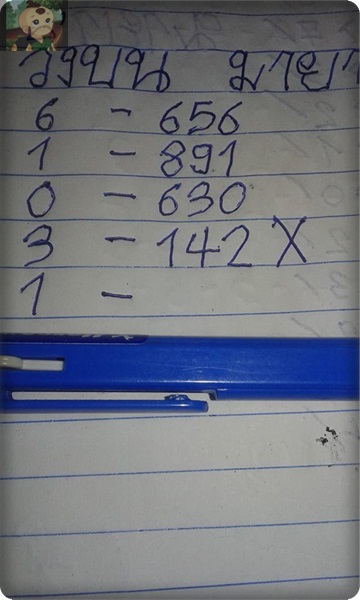 วิ่งบน มายา
6 - 656
1 - 891
0 - 630
3 - 142 X
1 -